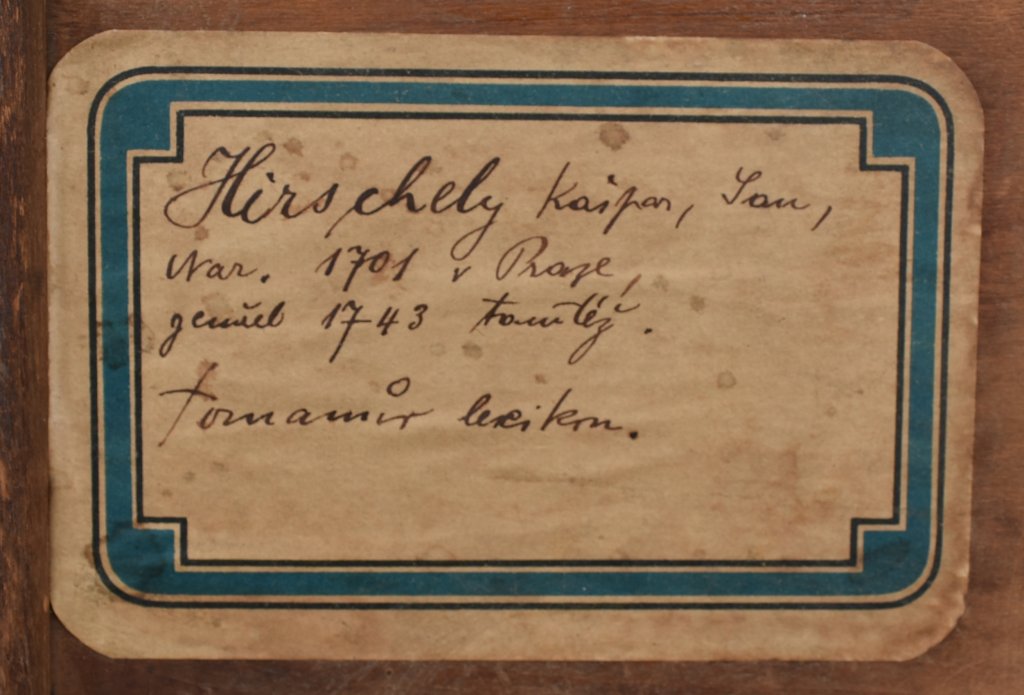 Hirschely Kašpar, Jan,
Nar. 1701 v Praze,
zemřel 1743 tamtéž.
Tomanův lexikon.